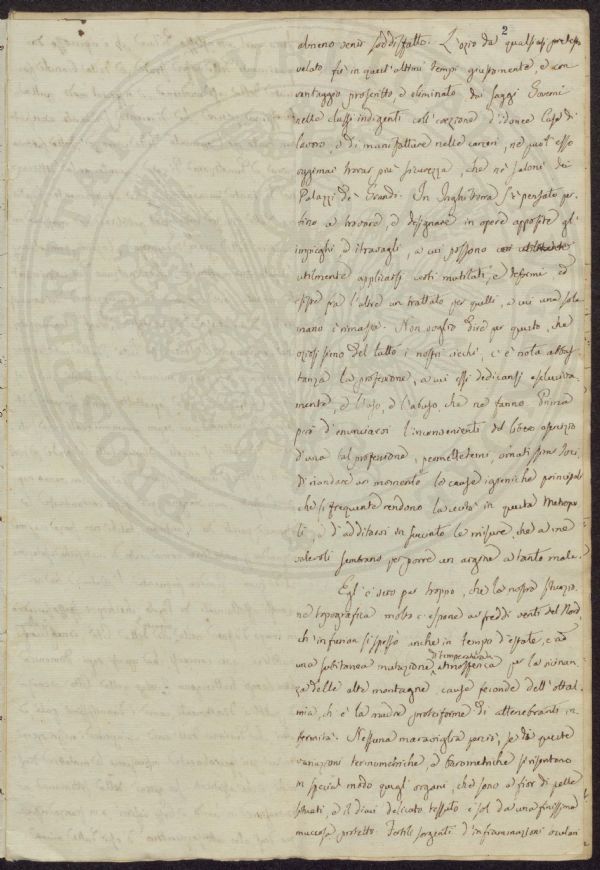 2
almeno venir soddisfatto. L'ozio da qualsiasi pretesto
velato fù in quest'ultimi tempi giustamente e con
vantaggio proscritto, e eliminato dai saggi Governi
nelle classi indigenti coll'erezione d'idonee Case di
lavoro, e di manifatture nelle carceri, nè può esso
oggimai trovar più sicurezza, che nè saloni dei
Palazzi de' Grandi. In Inghilterra s'è pensato per-
fino a trovare, e designare in opere apposite gl'
impieghi, e travagli, a cui possono
utilmente applicarsi certi mutilati, e deformi ed
esiste fra l'altre un trattato per quelli, a cui una sola
mano è rimasta. Non voglio dire per questo, che
oziosi sieno del tutto i nostri ciechi, e è nota abbas-
tanza la professione, a cui essi dedicansi esclusiva-
mente, e l'uso, e l'abuso, che ne fanno. Prima
però d'enunciarvi l'inconveniente del libero esercizio
d'una tal professione, permettetemi, ornatissimi Soci,
di riandare un momento le cause igieniche principali
che sì frequente rendono la cecità in questa Metropo-
li, e d'additarvi in succinto le misure, che a me
valevoli sembrano per porre un argine a tanto male.
Egl'è vero pur troppo, che la nostra situazio-
ne topografica molto c'espone ai freddi venti del Nord,
ch'infurian sì spesso anche in tempo d'estate, e ad
una subitanea mutazione di temperatura atmosferica per la vicinan-
za delle alte montagne, cause feconde dell'ottal-
mia, ch'è la madre proteiforme di ottenebranti in-
fermità. Nessuna maraviglia perciò, se di queste
variazioni termometriche, e barometriche si risentono
in special modo quegl'organi, che sono a fior di pelle
situati, e il di cui delicato tessuto è sol da una finissima
mucosa protetto. Fertili sorgenti d'infiammazioni oculari